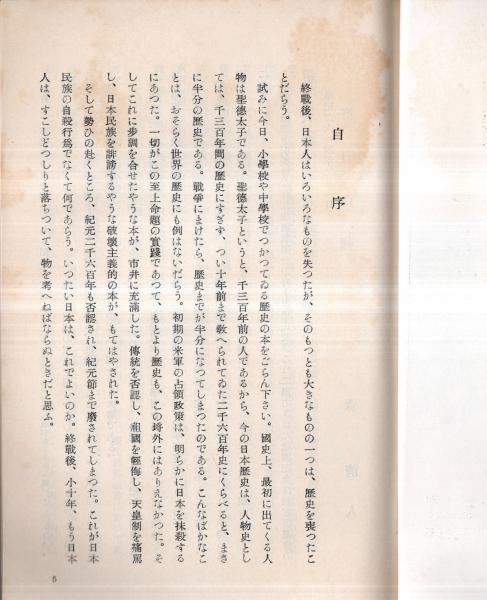 自序
終戰後、日本人はいろいろなものを失つたが、そのもつとも大きなものの一つは、歷史を喪つたこ
とだらう。
試みに今日、小學校や中學校でつかつてゐる歷史の本をごらん下さい。國史上、最初に出てくる人
物は聖德太子である。聖德太子というと、千三百年前の人であるから、今の日本歷史は、人物史とし
ては、千三百年間の歷史にすぎず、つい十年前まで敎へられてゐた二千六百年史にくらべると、まさ
に半分の歷史である。戰爭にまけたら、歷史までが半分になつてしまつたのである。こんなばかなこ
とは、おそらく世界の歷史にも例はないだらう。初期の米軍の占領政策は、明らかに日本を抹殺する
にあつた。一切がこの至上命題の實踐であつて、もとより歷史も、この埒外にはありえなかつた。そ
してこれに步調を合せたやうな本が、市井に充滿した。傳統を否認し、祖國を輕侮し、天皇制を痛罵
し、日本民族を誹謗するやうな破壞主義的の本が、もてはやされた。
そして勢ひの赴くところ、紀元二千六百年も否認され、紀元節まで廢されてしまつた。これが日本
民族の自殺行爲でなくて何であらう。いつたい日本は、これでよいのか。終戰後、小十年、もう日本
人は、すこしどつしりと落ちついて、物を考へねばならぬときだと思ふ。
5